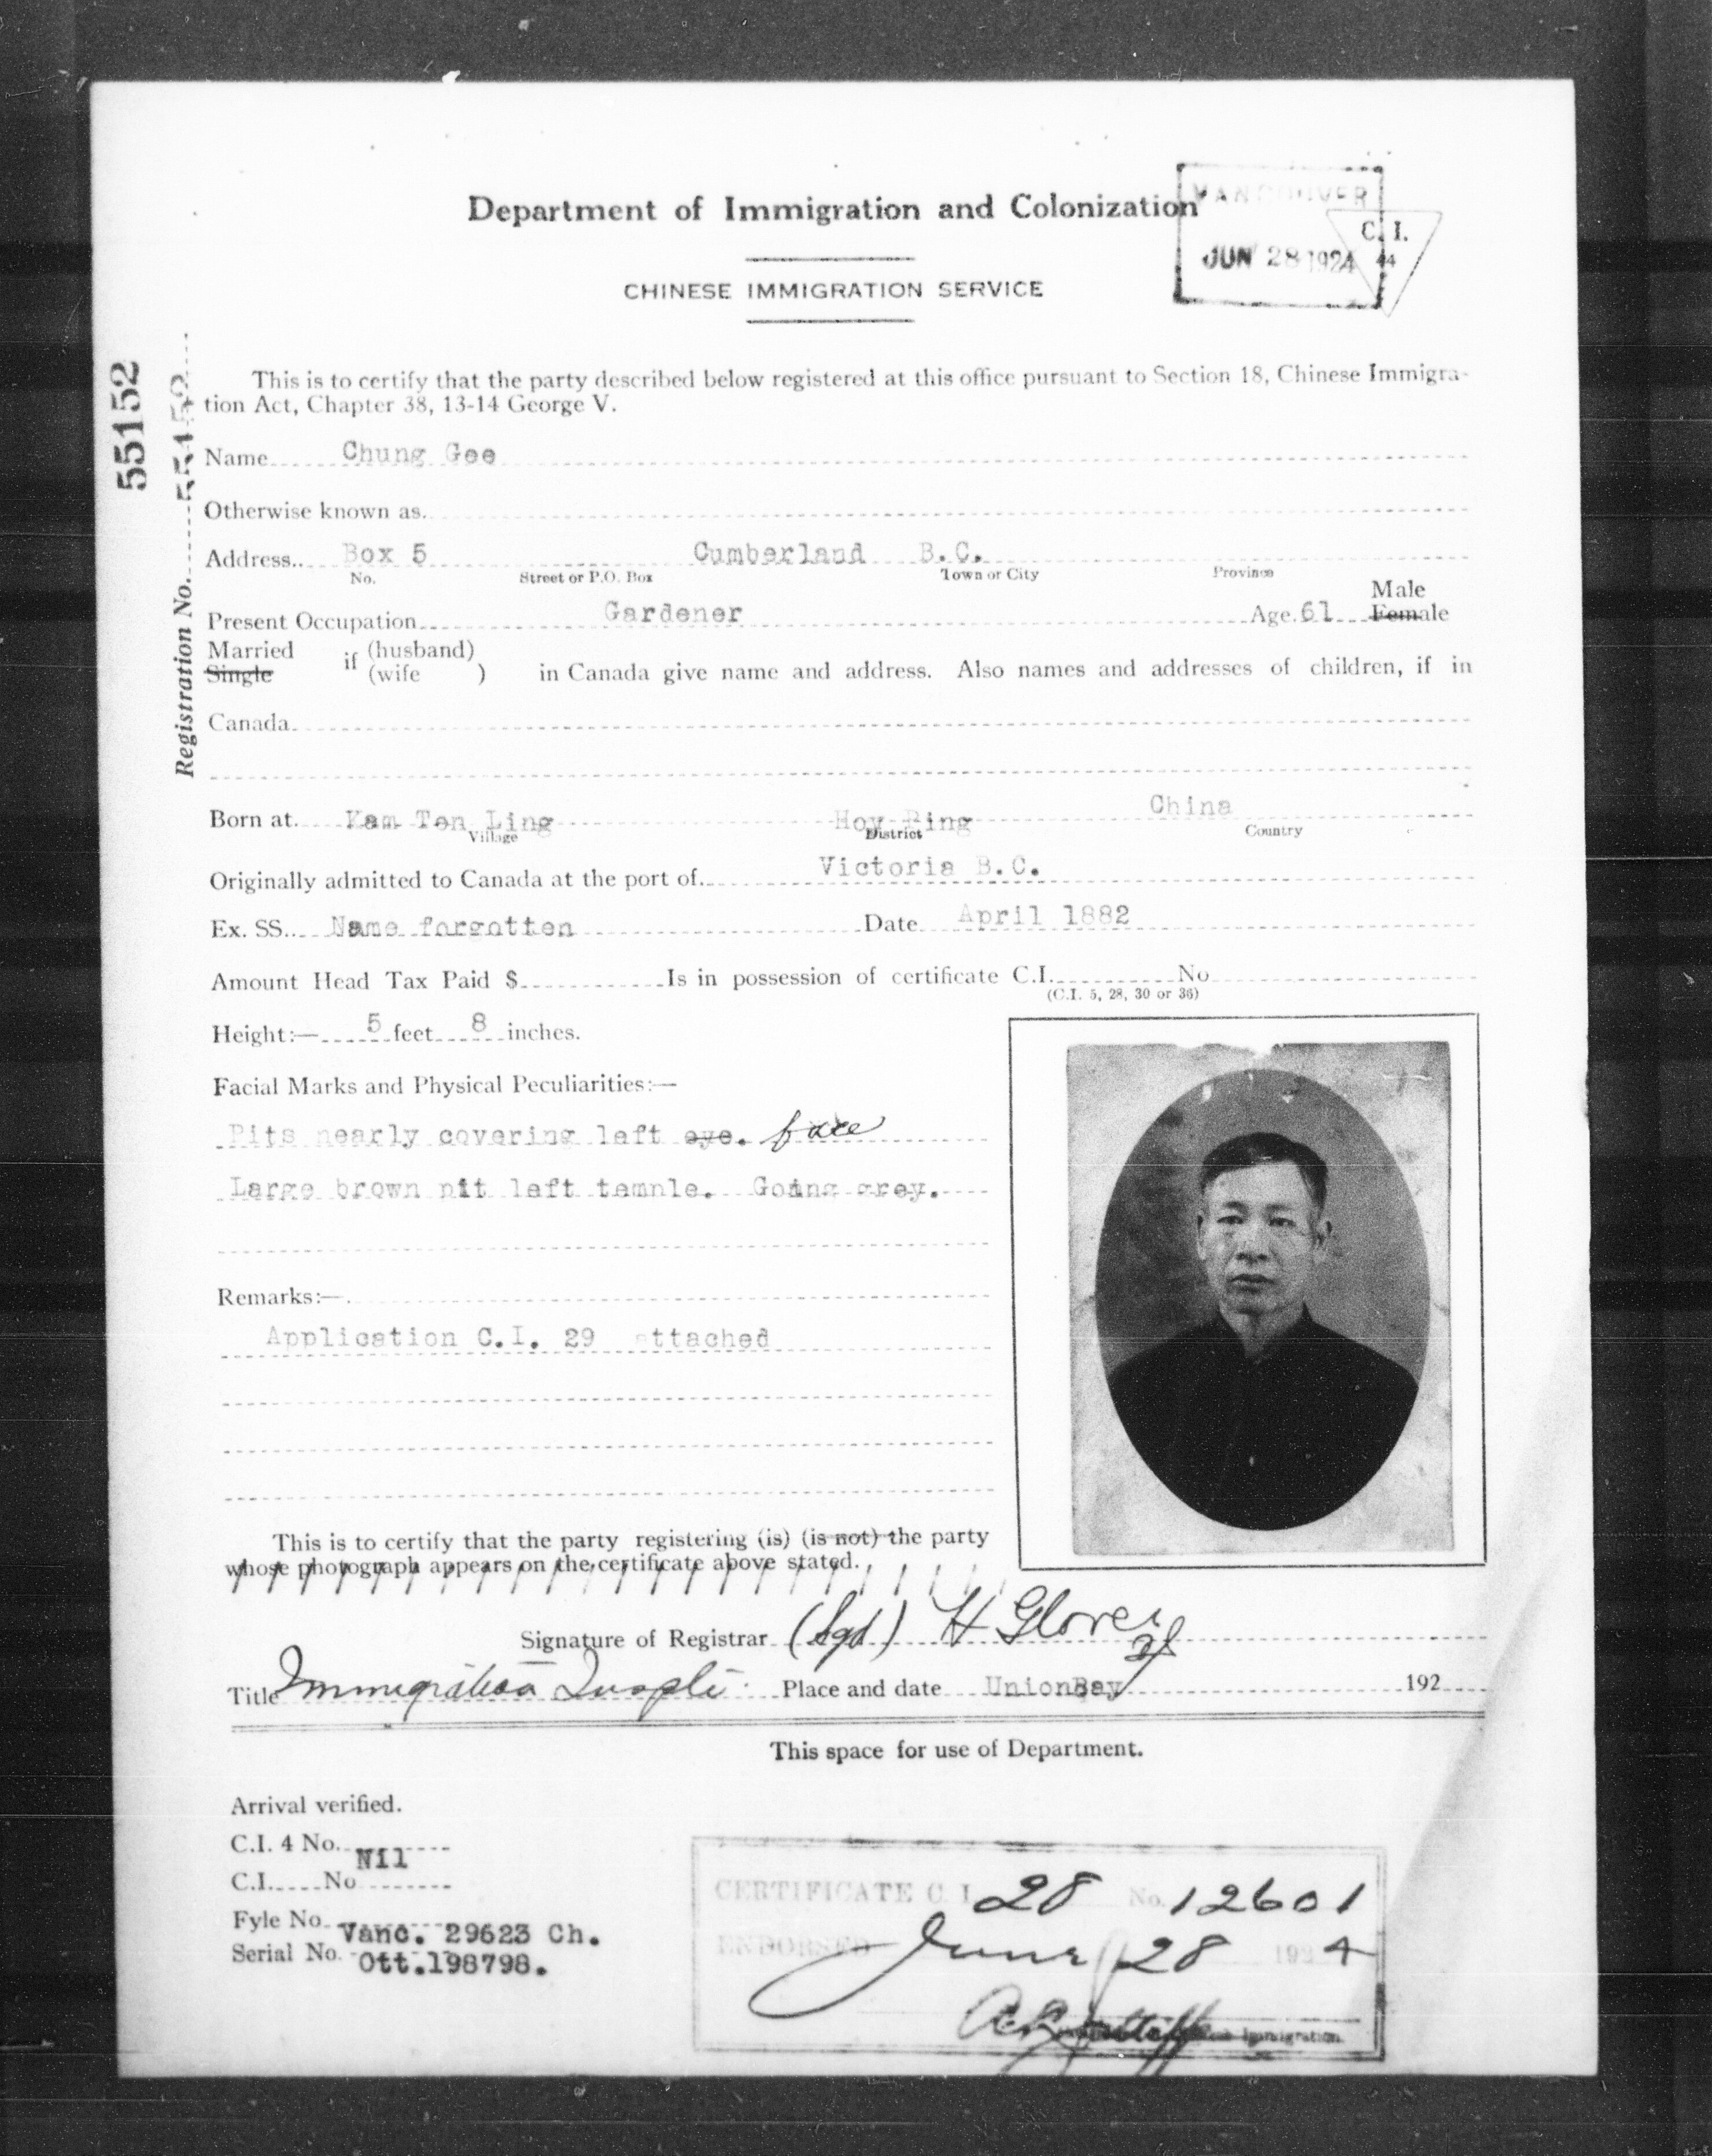 Department of Immigration and Colonization
VANCOUVER
JUN 28 1924
C. I.
44
CHINESE IMMIGRATION SERVICE
55152
Registration No. 55152
This is to certify that the party described below registered at this office pursuant to Section 18, Chinese Immigra-
tion Act, Chapter 38, 13-14 George V.
Name Chung Gee
Otherwise known as
Address Box 5 Cumberland B.C.
No. Street or P.O. Box Town or City Province
Male
Present Occupation Gardener Age 61 Female
Married if (husband)
Single (wife ) in Canada give name and address. Also names and addresses of children, if in
Canada
Born at Kam Ten Ling Hoy Ping China
Village District Country
Originally admitted to Canada at the port of Victoria B.C.
Ex. SS. Name forgotten Date April 1882
Amount Head Tax Paid $ Is in possession of certificate C.I. No
(C.I. 5, 28, 30 or 36)
Height:— 5 feet 8 inches.
Facial Marks and Physical Peculiarities:—
Pits nearly covering left eye. face
Large brown pit left temple. Going grey.
Remarks:—
Application C.I. 29 attached
This is to certify that the party registering (is) (is not) the party
whose photograph appears on the certificate above stated.
Signature of Registrar (Sgd) H Glover
Title Immigration Inspt. Place and date UnionBay 192
This space for use of Department.
Arrival verified.
C.I. 4 No.
Nil
C.I. No
Fyle No. Vanc. 29623 Ch.
Serial No. Ott.198798.
CERTIFICATE C. I. 28 No. 12601
ENDORSED June 28 1924
Immigration